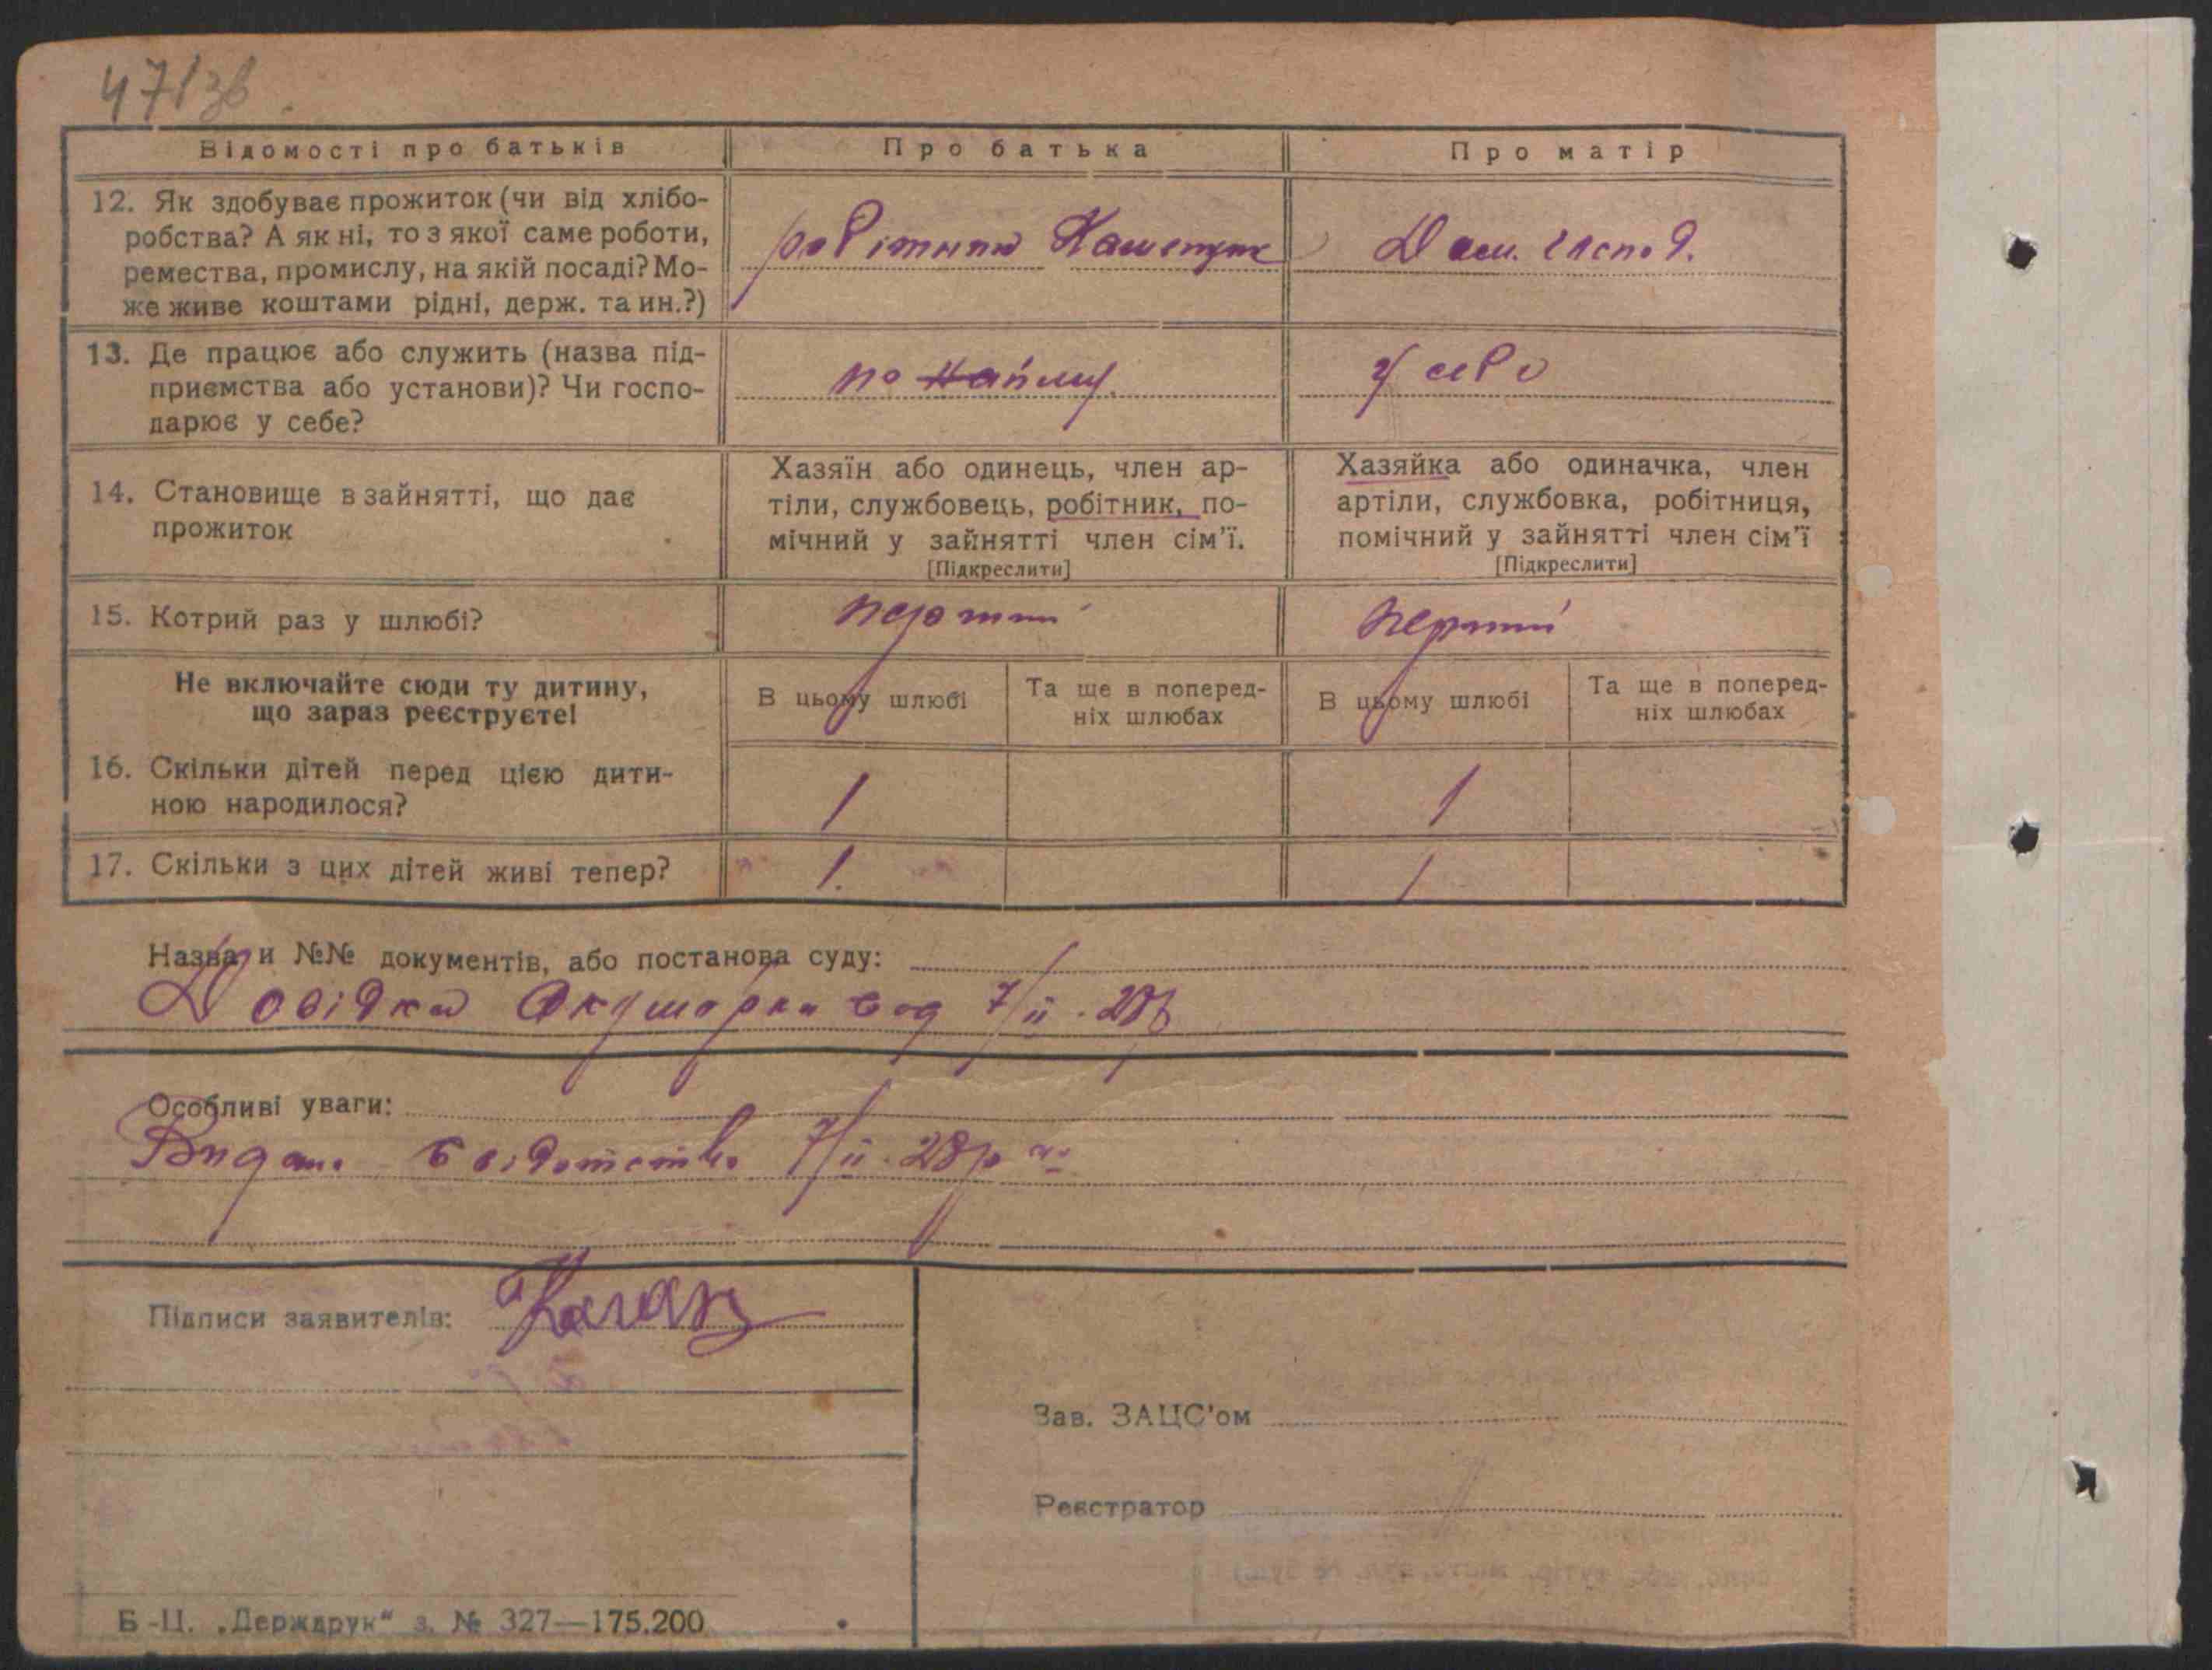 471зв
Відомості про батьків
Про батька
Про матір
12. Як здобуває прожиток (чи від хлібо-
робства? А як ні, то з якої саме роботи,
ремества, промислу, на якій посаді? Мо-
же живе коштами рідні, держ. та ин.?)
робітник
Дом. господ.
13. Де працює або служить (назва під-
приємства або установи)? Чи госпо-
дарює у себе?
по найму.
у себе
14. Становище в зайнятті, що дає
прожиток
Хазяїн або одинець, член ар-
тіли, службовець, робітник, по-
мічний у зайнятті член сім'ї.
[Підкреслити]
Хазяйка або одиначка, член
артіли, службовка, робітниця,
помічний у зайнятті член сім'ї
[Підкреслити]
15. Котрий раз у шлюбі?
перший
перший
Не включайте сюди ту дитину,
що зараз реєструєте!
В цьому шлюбі
Та ще в поперед-
ніх шлюбах
В цьому шлюбі
Та ще в поперед-
ніх шлюбах
16. Скільки дітей перед цією дити-
ною народилося?
1
1
17. Скільки з цих дітей живі тепер?
1.
1
Назва и №№ документів, або постанова суду:
Довідка Акушерки від 7/II.28р
Особливі уваги:
Видано свідотство 7/II.28р
Підписи заявителів: Каган
Зав. ЗАЦС'ом
Реєстратор
Б-Ц. „Держдрук“ з. № 327—175.200